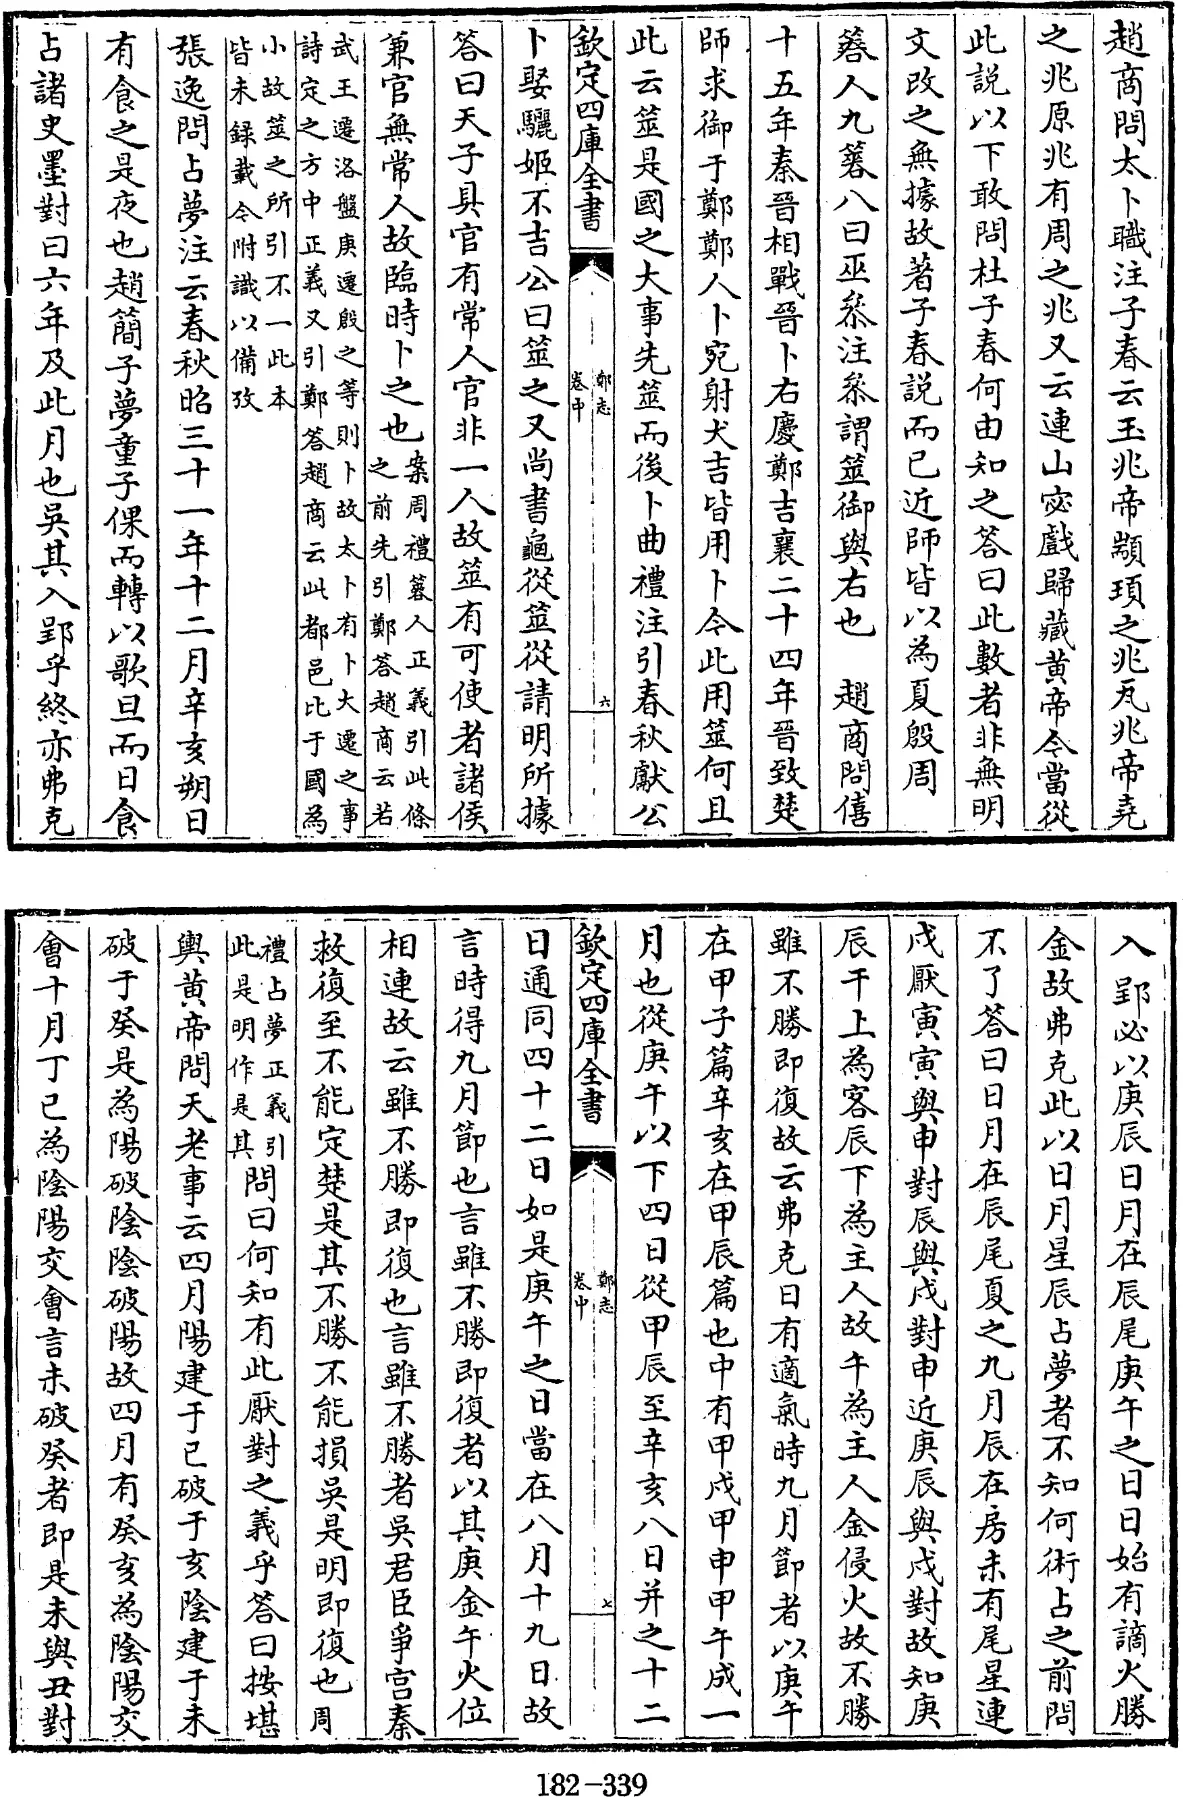 趙商問太卜職注子春云玉兆帝顓頊之兆瓦兆帝堯
之兆原兆有周之兆又云連山宓戲歸藏黄帝今當從
此説以下敢問杜子春何由知之答曰此數者非無明
文改之無據故著子春説而已近師皆以為夏殷周
簭人九簭八曰巫叅注叅謂筮御與右也　趙商問僖
十五年秦晉相戰晉卜右慶鄭吉襄二十四年晉致楚
師求御于鄭鄭人卜宛射犬吉皆用卜今此用筮何且
此云筮是國之大事先筮而後卜曲禮注引春秋獻公
欽定四庫全書
鄭志
卷中
六
卜娶驪姬不吉公曰筮之又尚書龜從筮從請明所據
答曰天子具官有常人官非一人故筮有可使者諸侯
兼官無常人故臨時卜之也案周禮簭人正義引此條
之前先引鄭答趙商云若
武王遷洛盤庚遷殷之等則卜故太卜有卜大遷之事
詩定之方中正義又引鄭答趙商云此都邑比于國為
小故筮之所引不一此本
皆未録載今附識以備攷
張逸問占夢注云春秋昭三十一年十二月辛亥朔日
有食之是夜也趙簡子夢童子倮而轉以歌旦而日食
占諸史墨對曰六年及此月也吳其入郢乎終亦弗克
入郢必以庚辰日月在辰尾庚午之日日始有謫火勝
金故弗克此以日月星辰占夢者不知何術占之前問
不了答曰日月在辰尾夏之九月辰在房未有尾星連
戍厭寅寅與申對辰與戍對申近庚辰與戍對故知庚
辰干上為客辰下為主人故午為主人金侵火故不勝
雖不勝即復故云弗克日有適氣時九月節者以庚午
在甲子篇辛亥在甲辰篇也中有甲戍甲申甲午成一
月也從庚午以下四日從甲辰至辛亥八日并之十二
欽定四庫全書
鄭志
卷中
七
日通同四十二日如是庚午之日當在八月十九日故
言時得九月節也言雖不勝即復者以其庚金午火位
相連故云雖不勝即復也言雖不勝者吳君臣爭宫秦
救復至不能定楚是其不勝不能損吳是明即復也周
禮占夢正義引
此是明作是其問曰何知有此厭對之義乎答曰按堪
輿黄帝問天老事云四月陽建于已破于亥陰建于未
破于癸是為陽破陰陰破陽故四月有癸亥為陰陽交
會十月丁已為陰陽交會言未破癸者即是未與丑對
182-339